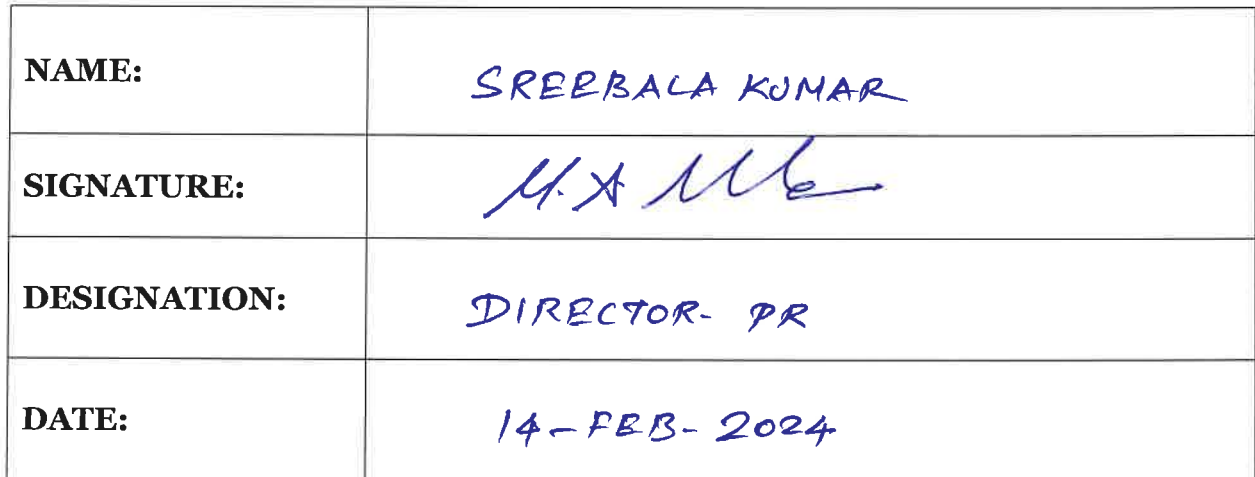 NAME: SREEBALA KUMAR
SIGNATURE:
DESIGNATION: DIRECTOR- PR
DATE: 14-FEB-2024